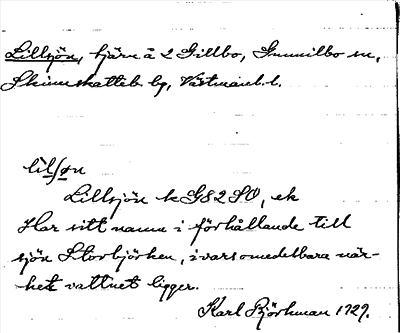 Lillsjön, tjärn å 2 Gillbo, Gunnilbo sn,
Skinnskatteb. bg, Västmanl. l.
lil/ʃøn
Lillsjön k G82SO, ek
Har sitt namn i förhållande till
sjön Storbjörken, i vars omedelbara när-
het vattnet ligger.
Karl Björkman 1929.